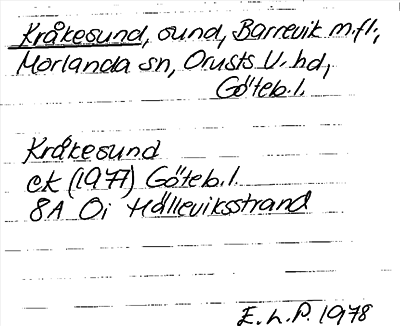 Kråkesund, sund, Barrevik m.fl.,
Morlanda sn, Orusts V. hd,
Göteb.l.
Kråkesund
ek (1977) Göteb.l.
8A Oi Hälleviksstrand
E.L.P. 1978